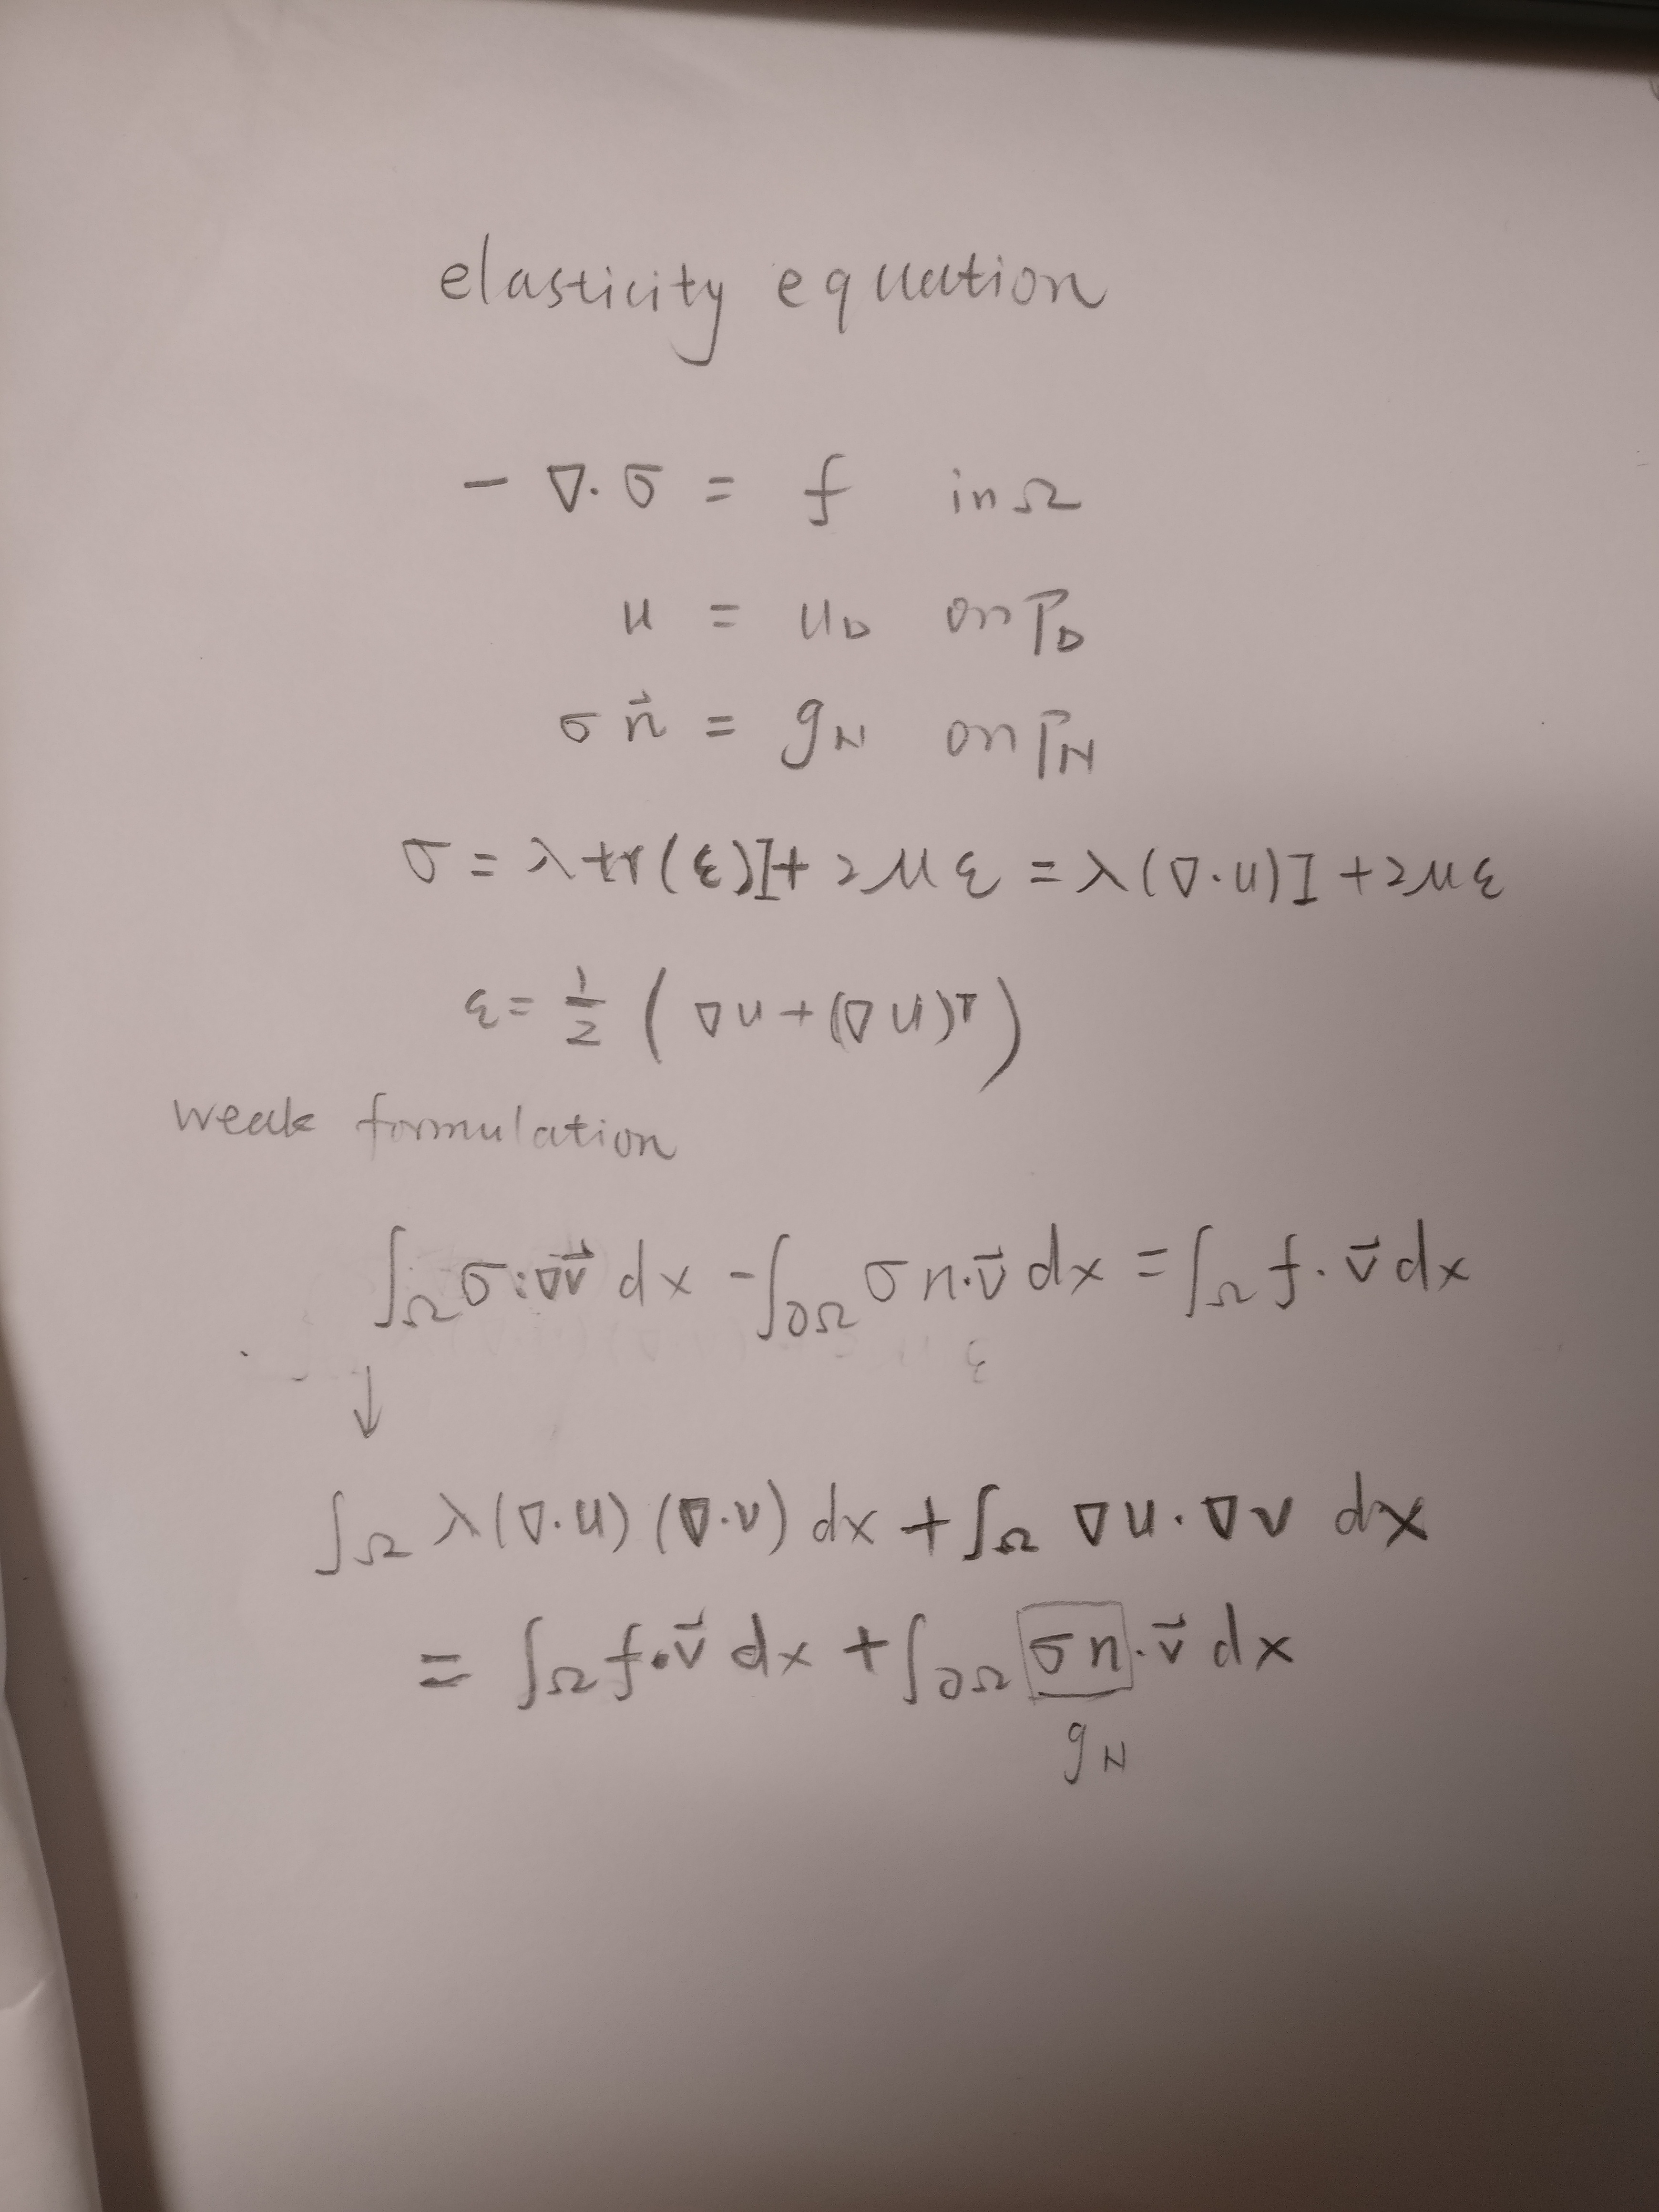 elasticity equation
− ∇·σ = f in Ω
u = u_D on Γ_D
σ n⃗ = g_N on Γ_N
σ = λ tr(ε)I + 2με = λ(∇·u)I + 2με
ε = 1/2 (∇u + (∇u)ᵀ)
weak formulation
∫_Ω σ:∇v⃗ dx − ∫_∂Ω σn·v⃗ dx = ∫_Ω f·v⃗ dx
↓
∫_Ω λ(∇·u)(∇·v) dx + ∫_Ω ∇u·∇v dx
= ∫_Ω f·v⃗ dx + ∫_∂Ω σn·v⃗ dx
g_N